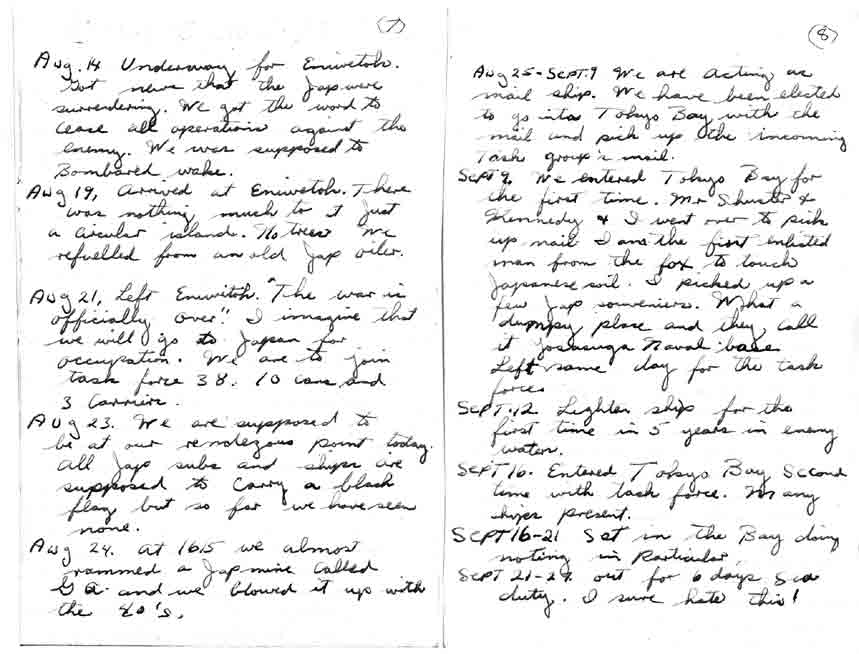 (7)
Aug. 14 Underway for Eniwetok.
Got news that the Jap were
surrendering. We got the word to
cease all operations against the
enemy. We was supposed to
Bombared wake.
Aug 19, Arrived at Eniwetok. There
was nothing much to it just
a circular island. No trees We
refuelled from an old Jap oiler.
Aug 21, Left Eniwitok. "The war is
officially over". I imagine that
we will go to Japan for
occupation. We are to join
task force 38. 10 cans and
3 Carriers.
Aug 23. We are supposed to
be at our rendezous point today.
all Jap subs and ships are
supposed to carry a black
flag but so far we have seen
none.
Aug 24. at 1615 we almost
rammed a Jap mine called
and we blowed it up with
the 40's.
(8)
Aug 25-Sept. 9 We are acting as
mail ship. We have been elected
to go into Tokyo Bay with the
mail and pick up the incoming
Task group's mail.
Sept 9. We entered Tokyo Bay for
the first time. Mr Shuster &
Kennedy & I went over to pick
up mail I am the first enlisted
man from the fox to touch
Japanese soil. I picked up a
few Jap souveniers. What a
dumpy place and they call
it Naval base
Left same day for the task
force
Sept. 12 Lighten ship for the
first time in 5 years in enemy
water.
Sept 16. Entered Tokyo Bay Second
time with task force. Many
ships present.
Sept 16-21 Set in the Bay doing
noting in Particular
Sept 21-27 out for 6 days Sea
duty. I sure hate this!